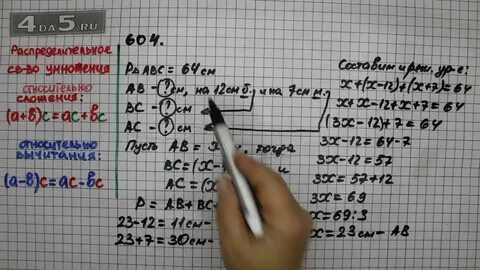 4DA5.RU
Распределительное
св-во умножения
относительно
сложения:
(а+в)с=ас+вс
относительно
вычитания:
(а-в)с=ас-вс
604.
P△ABC = 64 см
AB - ? см, на 12 см б. и на 7 см м.
BC - ? см
AC - ? см
Пусть AB = x тогда
BC = (x- и
AC = (x
P = AB + BC
23-12 = 11 см-
23+7 = 30 см-
Составим и реш. ур-е:
x+(x-12)+(x+7)=64
x+x-12+x+7=64
(3x-12)+7=64
3x-12=64-7
3x-12=57
3x=57+12
3x=69
x=69:3
x=23 см - AB